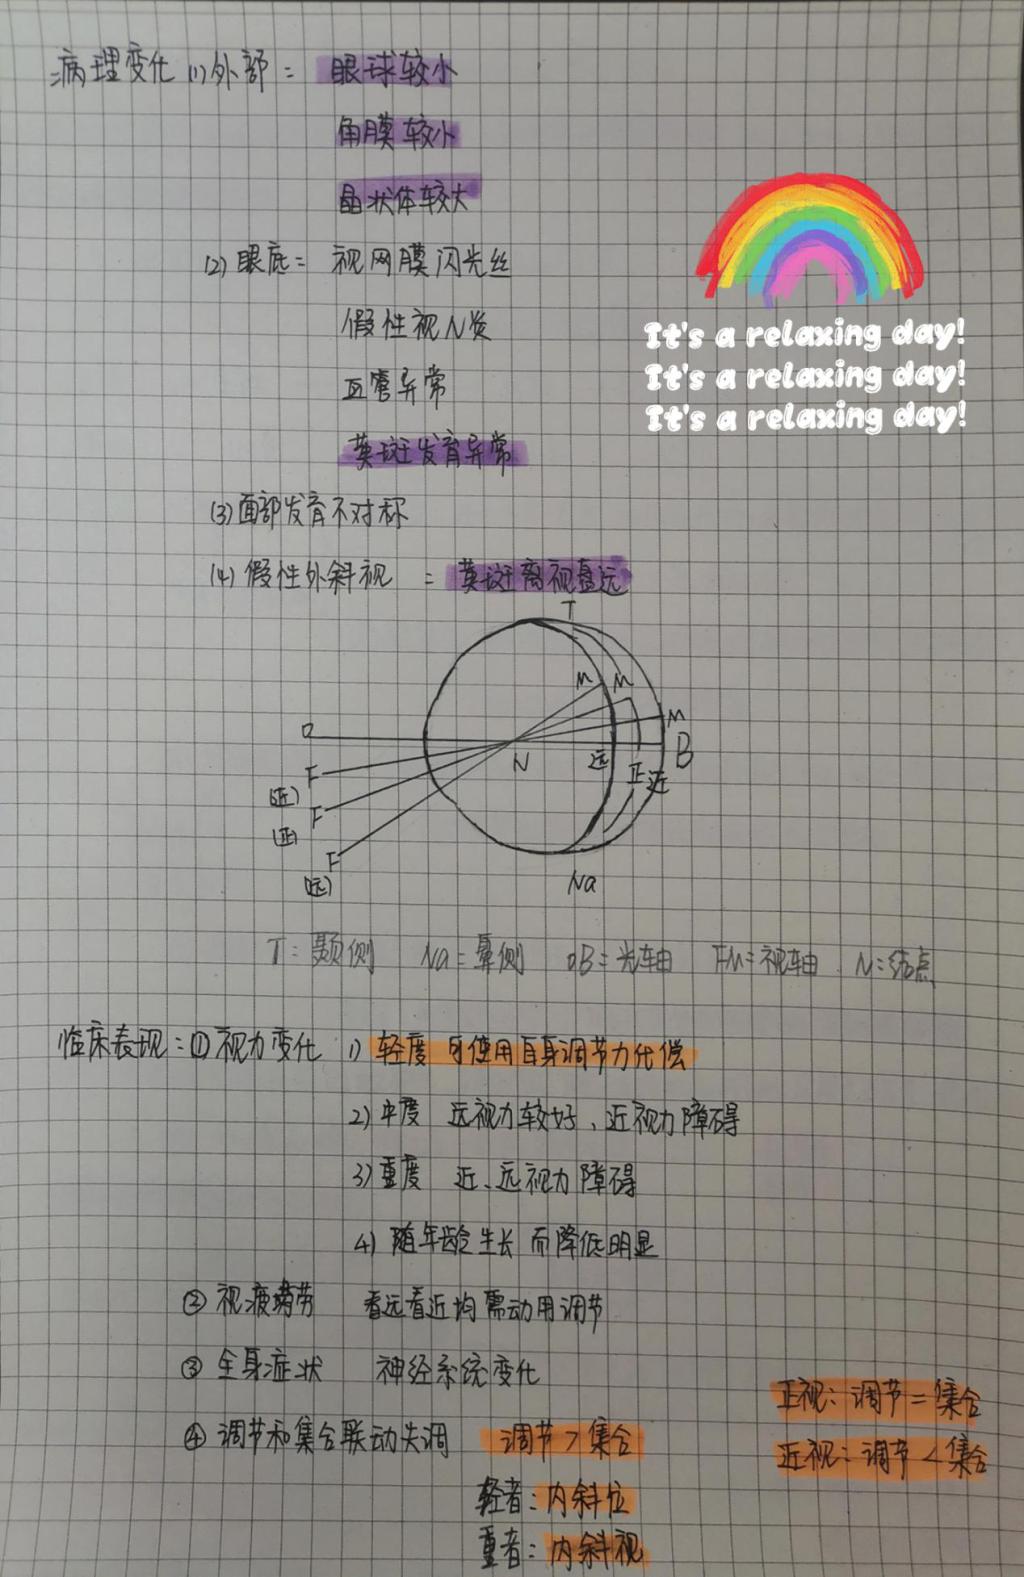 病理变化 (1)外部: 眼球较小
角膜较小
晶状体较大
(2)眼底: 视网膜闪光丝
假性视N炎
血管异常
黄斑发育异常
It's a relaxing day!
It's a relaxing day!
It's a relaxing day!
(3)面部发育不对称
(4)假性外斜视 : 黄斑离视盘远
T
M M
M
O
B
N
远
正 近
F
(近)
F
(正)
F
(远)
Na
T: 颞侧 Na: 鼻侧 OB=光轴 FM=视轴 N:结点
临床表现:① 视力变化 1) 轻度 可使用自身调节力代偿
2) 中度 远视力较好、近视力障碍
3) 重度 近、远视力障碍
4) 随年龄生长而降低明显
② 视疲劳 看远看近均需动用调节
③ 全身症状 神经系统变化
正视: 调节=集合
④ 调节和集合联动失调 调节>集合
近视: 调节<集合
轻者: 内斜位
重者: 内斜视